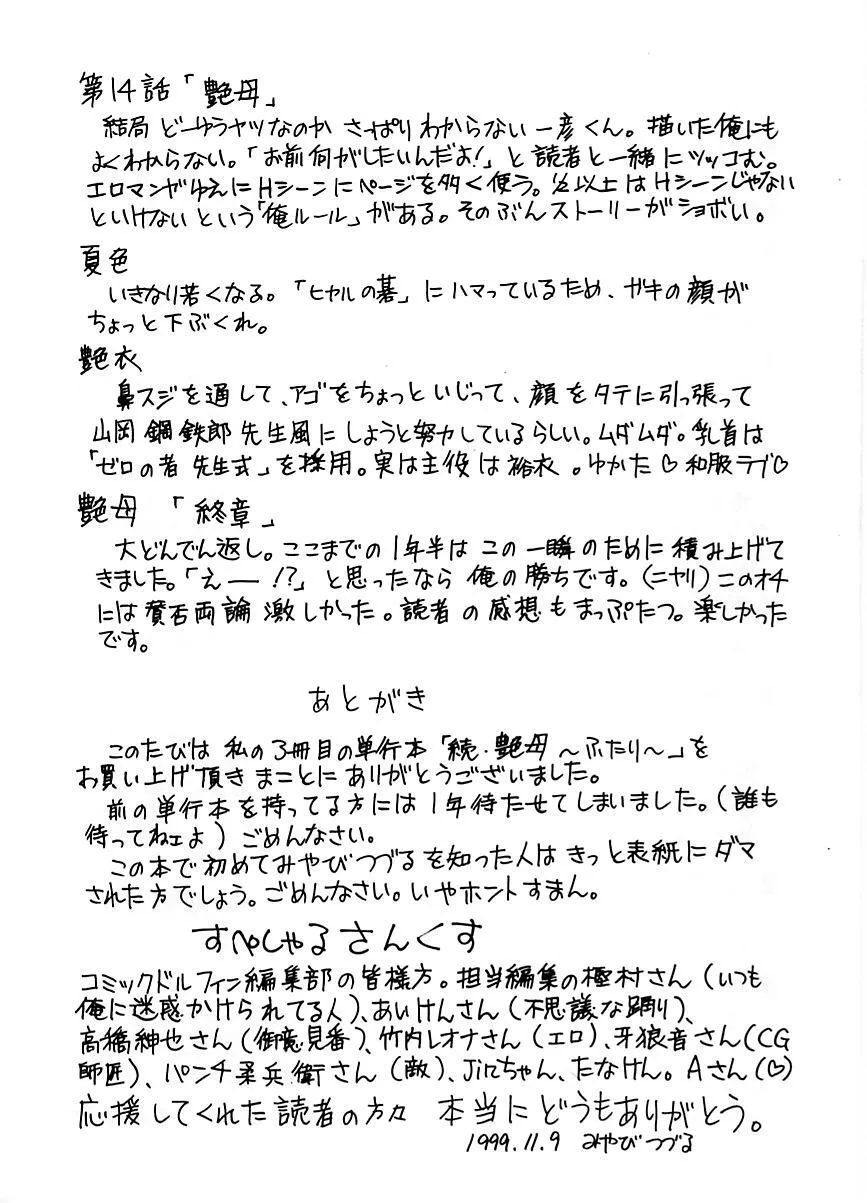 第14話「艶母」
結局 どーゆうヤツなのか さっぱり わからない 一彦くん。描いた俺にも
よくわからない。「お前何がしたいんだよ!」と読者と一緒にツッコむ。
エロマンガゆえにHシーンにページを多く使う。½以上はHシーンじゃない
といけない という「俺ルール」がある。そのぶんストーリーがショボい。
夏色
いきなり若くなる。「ヒカルの碁」にハマっているため、ガキの顔が
ちょっと下ぶくれ。
艶衣
鼻スジを通して、アゴをちょっといじって、顔をタテに引っ張って
山岡鋼鉄郎先生風にしようと努力しているらしい。ムダムダ。乳首は
「ゼロの者 先生式」を採用。実は主役は裕衣。ゆかた♡和服ラブ♡
艶母 「終章」
大どんでん返し。ここまでの1年半は この一瞬のために積み上げて
きました。「えー!?」と思ったなら俺の勝ちです。(ニヤリ)このオチ
には賛否両論激しかった。読者の感想もまっぷたつ。楽しかった
です。
あとがき
このたびは 私の3冊目の単行本「続・艶母～ふたり～」を
お買い上げ頂き まことにありがとうございました。
前の単行本を持ってる方には1年待たせてしまいました。(誰も
待ってねェよ)ごめんなさい。
この本で初めてみやびつづるを知った人は きっと表紙にダマ
された方でしょう。ごめんなさい。いやホントすまん。
すぺしゃるさんくす
コミックドルフィン編集部の皆様方。担当編集の極村さん(いつも
俺に迷惑かけられてる人)、あいけんさん(不思議な踊り)、
高橋紳也さん(御意見番)、竹内レオナさん(エロ)、牙狼音さん(CG
師匠)、パンチ柔兵衛さん(敵)、Jinちゃん、たなけん。Aさん(♡)
応援してくれた読者の方々 本当にどうもありがとう。
1999.11.9 みやびつづる